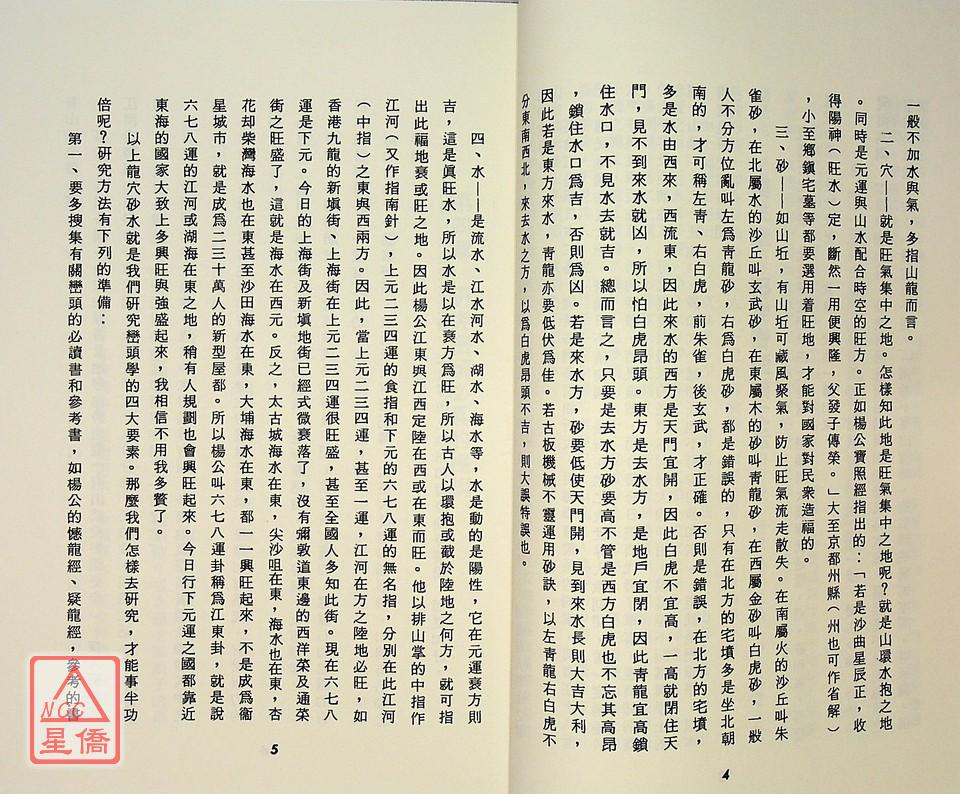 一般不加水與氣，多指山龍而言。
二、穴——就是旺氣集中之地。怎樣知此地是旺氣集中之地呢？就是山環水抱之地
。同時是元運與山水配合時空的旺方。正如楊公寶照經指出的：「若是沙曲星辰正，收
得陽神（旺水）定，斷然一用便興隆，父發子傳榮。」大至京都州縣（州也可作省解）
，小至鄉鎮宅墓等都要選用着旺地，才能對國家對民衆造福的。
三、砂——如山坵，有山坵可藏風聚氣，防止旺氣流走散失。在南屬火的沙丘叫朱
雀砂，在北屬水的沙丘叫玄武砂，在東屬木的砂叫靑龍砂，在西屬金砂叫白虎砂，一般
人不分方位亂叫左爲靑龍砂，右爲白虎砂，都是錯誤的，只有在北方的宅墳多是坐北朝
南的，才可稱左靑、右白虎，前朱雀，後玄武，才正確。否則是錯誤，在北方的宅墳，
多是水由西來，西流東，因此來水的西方是天門宜開，因此白虎不宜高，一高就閉住天
門，見不到來水就凶，所以怕白虎昂頭。東方是去水方，是地戶宜閉，因此靑龍宜高鎖
住水口，不見水去就吉。總而言之，只要是去水方砂要高不管是西方白虎也不忘其高昂
，鎖住水口爲吉，否則爲凶。若是來水方，砂要低使天門開，見到來水長則大吉大利，
因此若是東方來水，靑龍亦要低伏爲佳。若古板機械不靈運用砂訣，以左靑龍右白虎不
分東南西北，來去水之方，以爲白虎昂頭不吉，則大誤特誤也。
4
四、水——是流水、江水河水、湖水、海水等，水是動的是陽性，它在元運衰方則
吉，這是眞旺水，所以水是以在衰方爲旺，所以古人以環抱或截於陸地之何方，就可指
出此福地衰或旺之地。因此楊公江東與江西定陸在西或在東而旺。他以排山掌的中指作
江河（又作指南針），上元二三四運的食指和下元的六七八運的無名指，分別在此江河
（中指）之東與西兩方。因此，當上元二三四運，甚至一運，江河在方之陸地必旺，如
香港九龍的新塡街、上海街在上元二三四運很旺盛，甚至全國人多知此街。現在六七八
運是下元。今日的上海街及新塡地街已經式微衰落了，沒有彌敦道東邊的西洋榮及通榮
街之旺盛了，這就是海水在西元。反之，太古城海水在東，尖沙咀在東，海水也在東，杏
花却柴灣海水也在東甚至沙田海水在東，大埔海水在東，都一一興旺起來，不是成爲衞
星城市，就是成爲二三十萬人的新型屋都。所以楊公叫六七八運卦稱爲江東卦，就是說
六七八運的江河或湖海在東之地，稍有人規劃也會興旺起來。今日行下元運之國都靠近
東海的國家大致上多興旺與強盛起來，我相信不用我多贅了。
以上龍穴砂水就是我們硏究巒頭學的四大要素。那麼我們怎樣去硏究，才能事半功
倍呢？硏究方法有下列的準備：
第一、要多搜集有關巒頭的必讀書和參考書，如楊公的憾龍經、疑龍經，參考的書
5
NCC
星僑